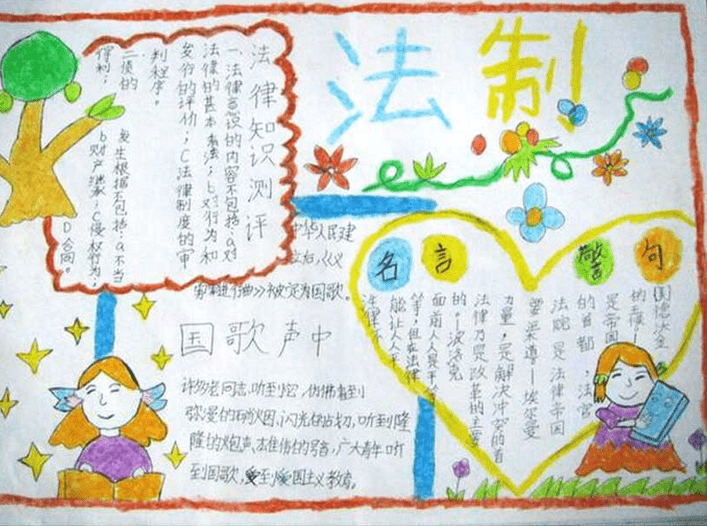 法制
法律知识测评
一、法律意识的内容不包括：a对
法律的基本看法；b对行为和
发行的评价；C法律制度的审
判程序。
二债的
发生根据不包括：a不当
得利；
b财产继承；C侵权行为；
D合同。
中华人民建
立后，《义
勇军进行曲》被定为国歌。
国歌声中
许多老同志，听到它，仿佛看到
弥漫的硝烟，闪光的战刀，听到隆
隆的炮声，雄伟的号音，广大青年听
到国歌，受到爱国主义教育。
名言警句
国德沃金
是帝国
的首都，法官
法院是法律帝国
要柔道——埃尔曼
力量，是解决冲突的首
法律乃是改革的主要
的。——波洛克
面前人人是平等
等；但在法律
能让人人平
法律不